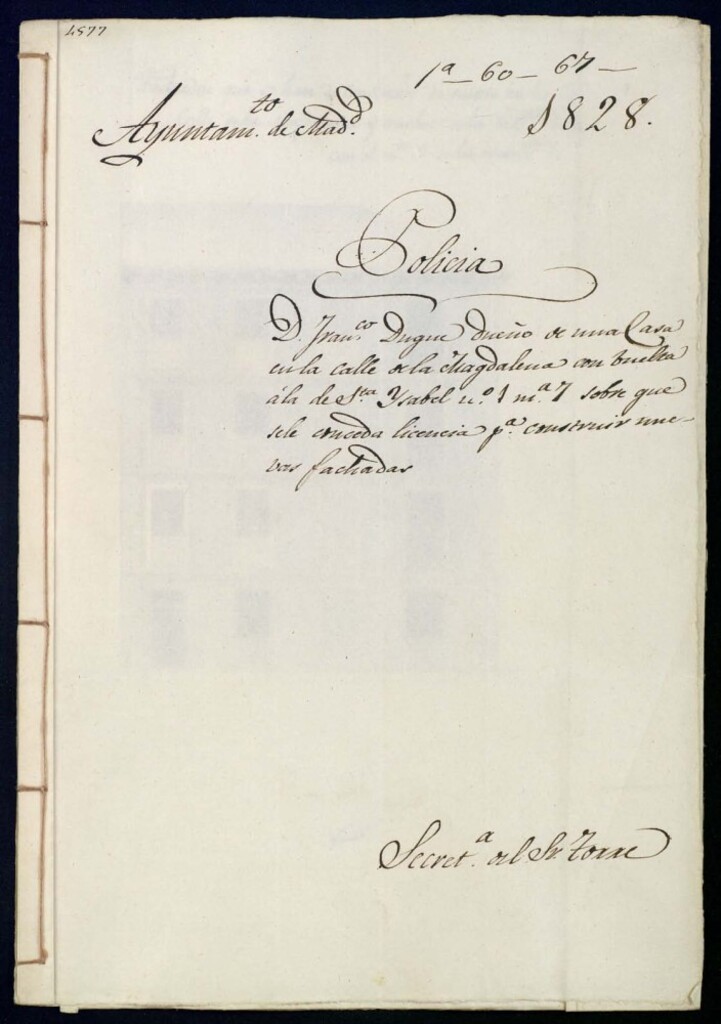 4577
1ª - 60 - 67 -
Ayuntam.to de Mad.d
1828.
Policia
D. Fran.co Duque dueño de una Casa
en la calle de la Magdalena con buelta
à la de S.ta Ysabel n.º 1 m.ª 7 sobre que
sele conceda licencia p.ª construir nue-
vas fachadas
Secret.a del Sr. Torre